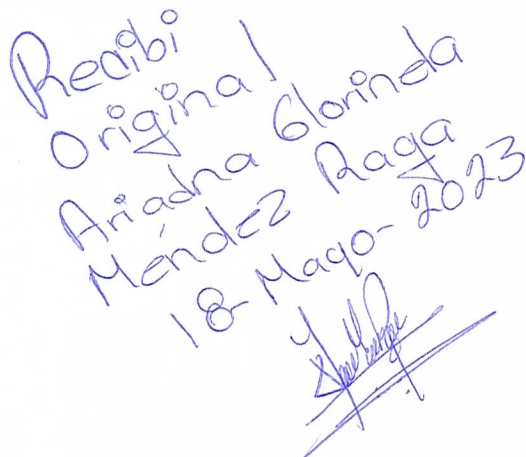 Recibi
Original
Ariadna Glorinda
Méndez Raga
18-Mayo-2023